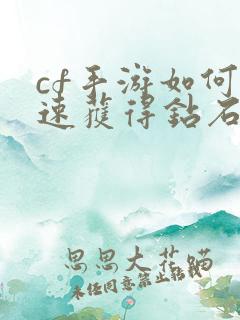 cf手游如何
速獲得鈷石
思思大花瞄
未经同意禁止转载